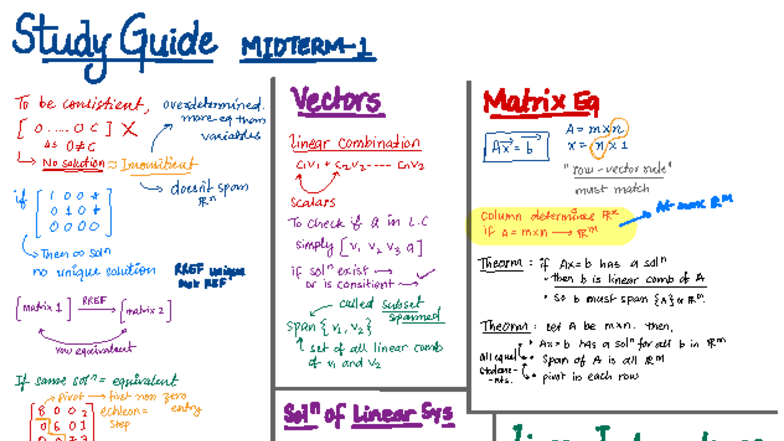 Study Guide MIDTERM-1
To be consistient,
[ 0 ..... 0 c ] X
as 0≠c
No solution ≈ Inconsistient
overdetermined.
more eq then
variables
doesn't span
ℝⁿ
if [ 1 0 0 *
0 1 0 *
0 0 0 0 ]
Then ∞ solⁿ
no unique solution
RREF unique
not REF
[matrix 1] RREF → [matrix 2]
row equivalent
If same solⁿ = equivalent
pivot → first non zero
entry
echleon =
step
8 0 0 2
0 6 0 1
Vectors
linear combination
c₁v₁ + c₂v₂ ---- cₙv₂
scalars
To check if a in L.C
simply [v₁ v₂ v₃ a]
if solⁿ exist → ✓
or is consitient →
called subset
spanned
span {v₁, v₂}
set of all linear comb
of v₁ and v₂
Solⁿ of Linear Sys
Matrix Eq
Ax = b
A = m x n
x = n x 1
"row-vector rule"
must match
column determines
if A = m x n → ℝᵐ
At most ℝᵐ
Theorm : if Ax = b has a solⁿ
• then b is linear comb of A
• So b must span {A} or ℝᵐ.
Theorm : Let A be mxn. then,
• Ax = b has a solⁿ for all b in ℝᵐ
• Span of A is all ℝᵐ
• pivot in each row
all equal
stateme-
nts.